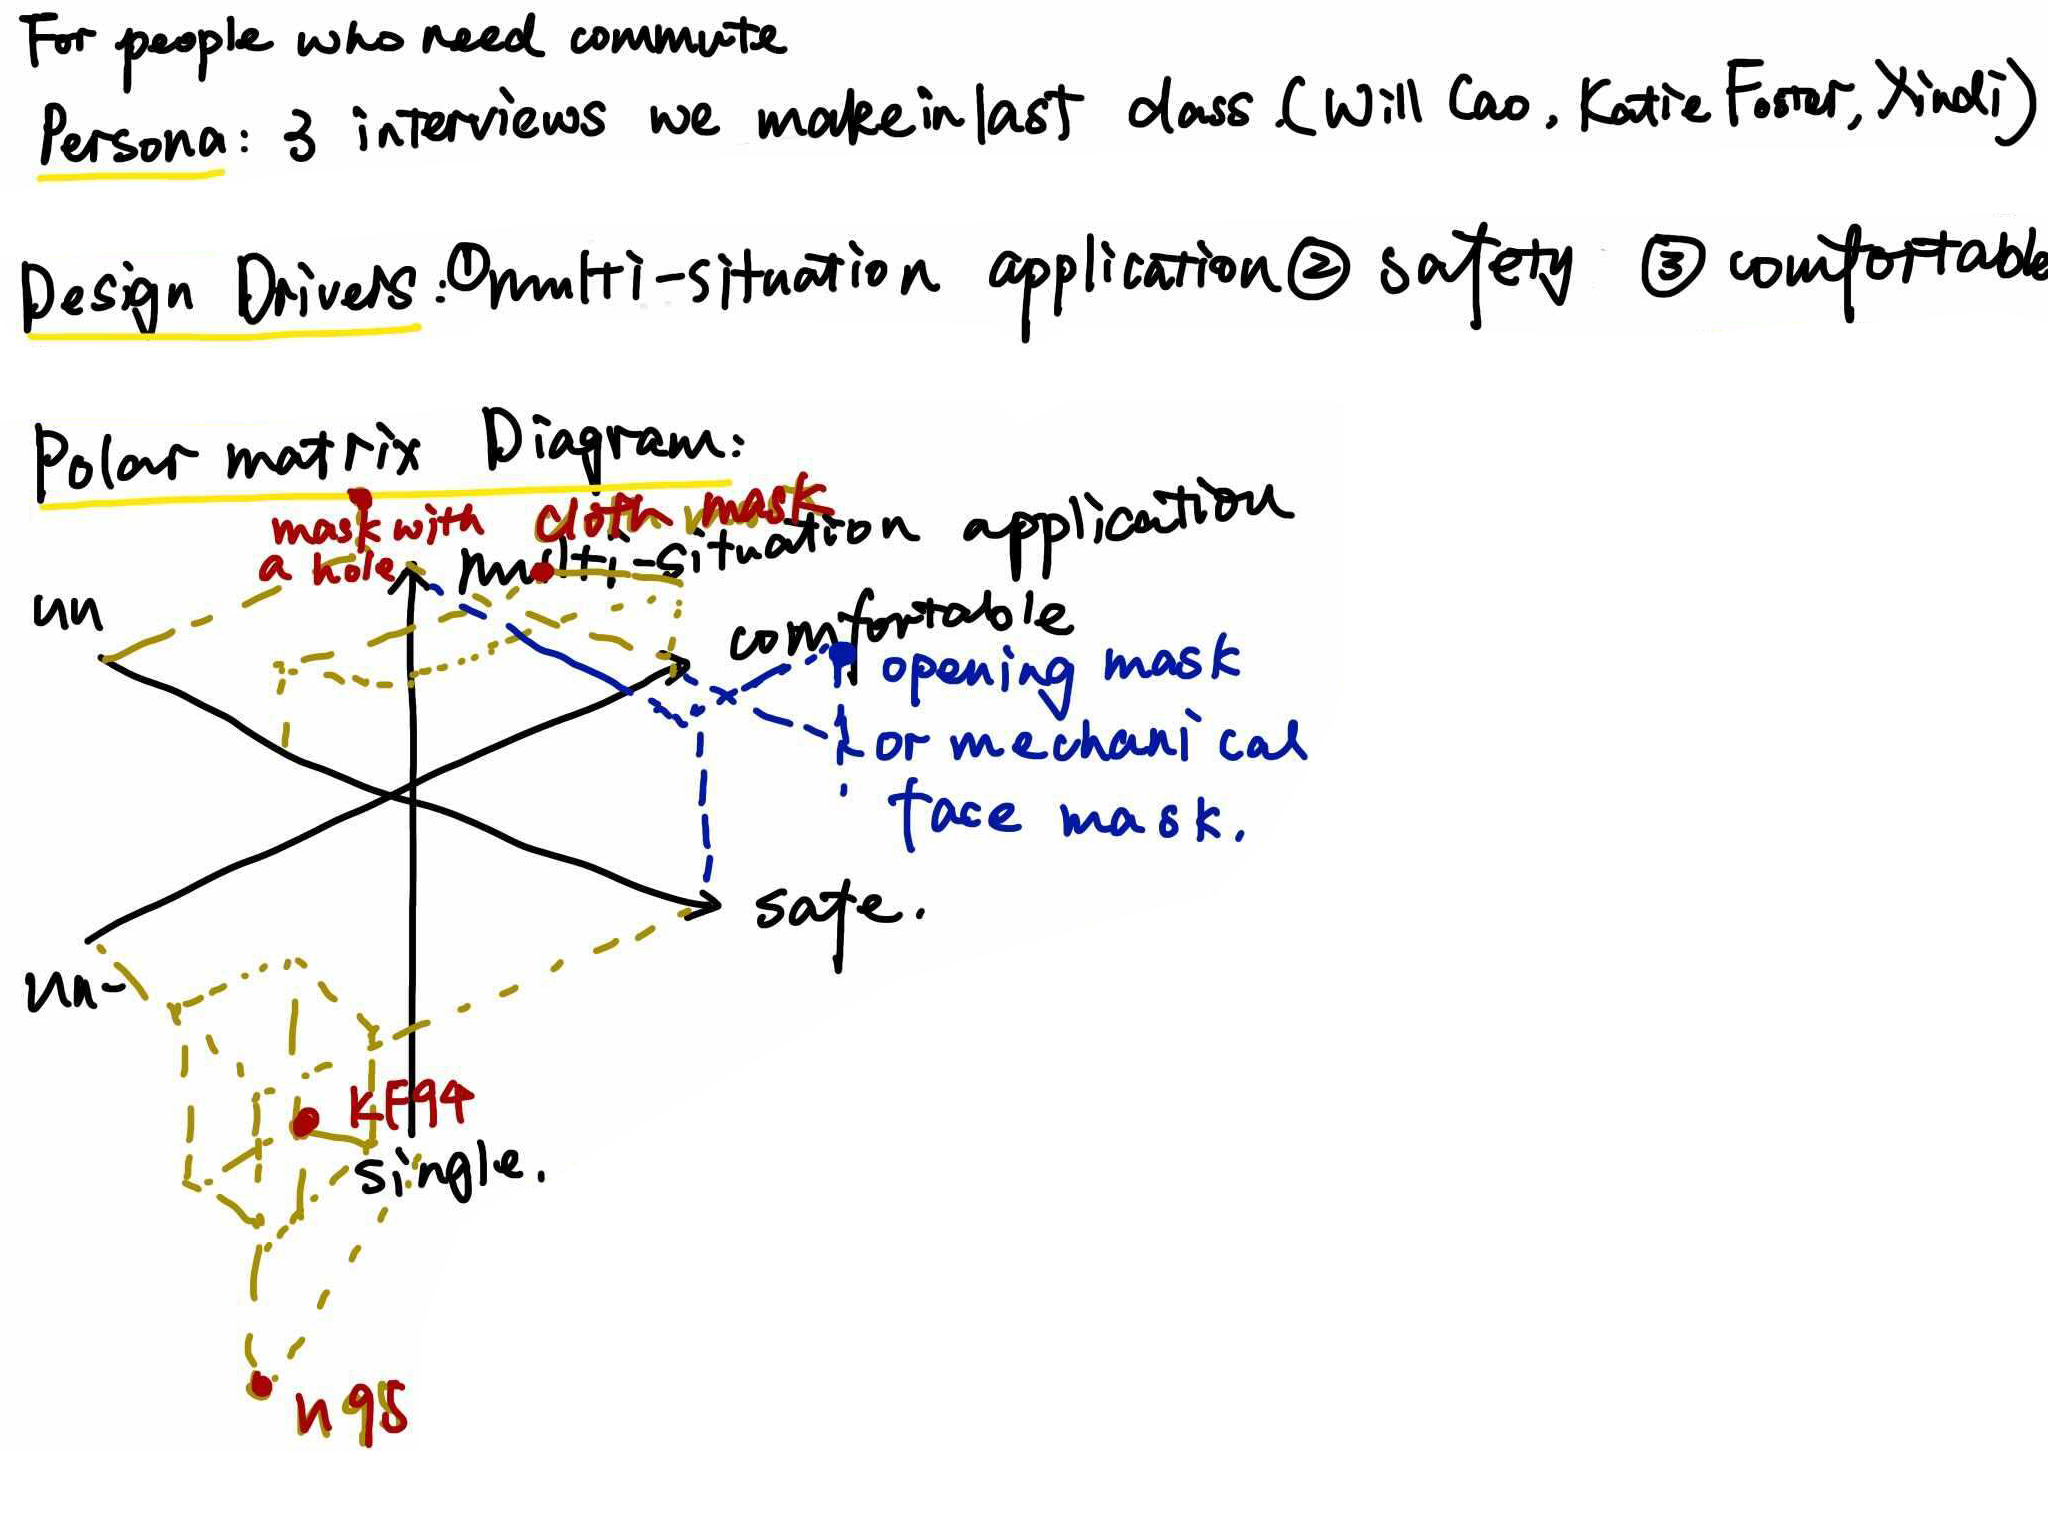 For people who need commute
Persona: 3 interviews we make in last class. (Will Cao, Katie Foster, Xindi)
Design Drivers: ① multi-situation application ② safety ③ comfortable
Polar matrix Diagram:
mask with
a hole
cloth mask
multi-situation application
un
comfortable
opening mask
or mechanical
face mask.
safe.
un-
KF94
single.
n95